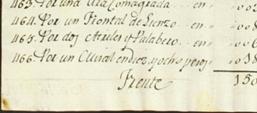 463. Por una Ara Consagrada en 00
464. Por un Frontal de Lienzo en 00
465. Por dos Atriles y Palabero en 006
466. Por un en diez y ocho pesos 018
Frente 150